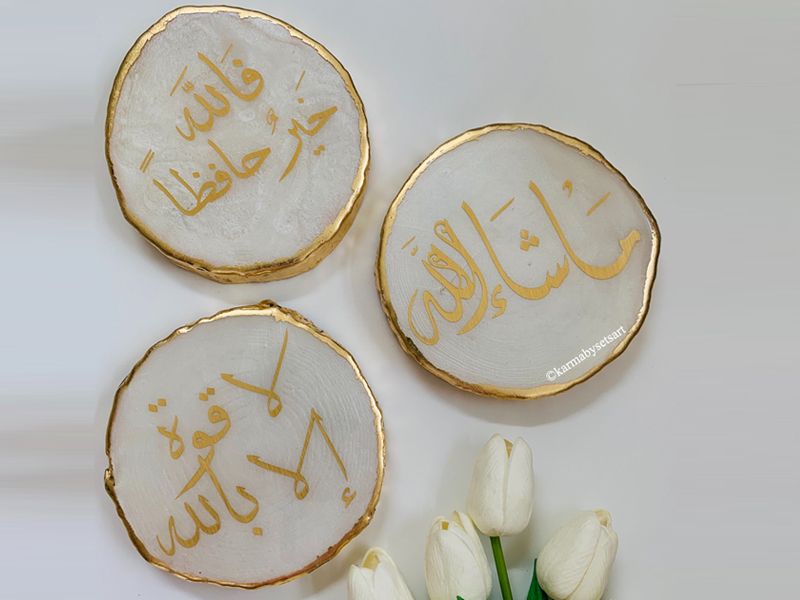 فَاللّٰه
خَيرُ حافظاً
مَاشَاءَ اللّٰه
©karmabysetsart
لا قوة
إلا بالله